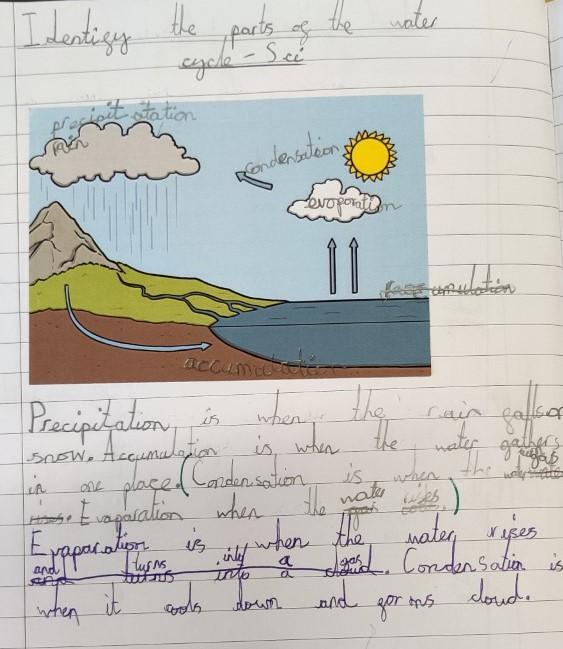 Identify the parts of the water
cycle - Sci
precipitation
rain
condensation
evoporation
accumulation
Precipitation is when the rain falls or
snow. Accumulation is when the water gathers
in one place. (Condensation is when the
Evaparation when the water rises.)
Evaparation is when the water rises
and turns into a gas. Condensation is
when it cools down and forms cloud.